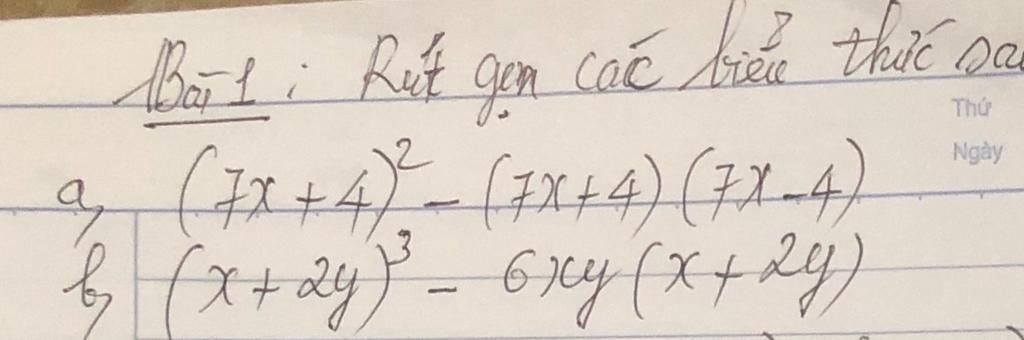 Bài 1 : Rút gọn các biểu thức sau
Thứ
Ngày
a, (7x + 4)² - (7x + 4) (7x - 4)
b, (x + 2y)³ - 6xy (x + 2y)